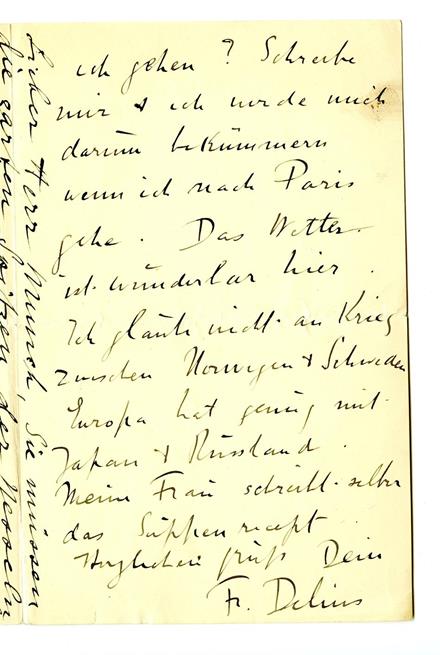 ich gehen? Schreibe
mir & ich werde mich
darum bekümmern
wenn ich nach Paris
gehe. Das Wetter
ist wunderbar hier.
Ich glaube nicht an Krieg
zwischen Norwegen & Schweden
Europa hat genug mit
Japan & Russland.
Meine Frau schreibt selber
das Suppenrecept
Herzlichen Gruß Dein
Fr. Delius
Lieber Herr Munch, Sie müssen
die zarten Spitzen der Nesseln